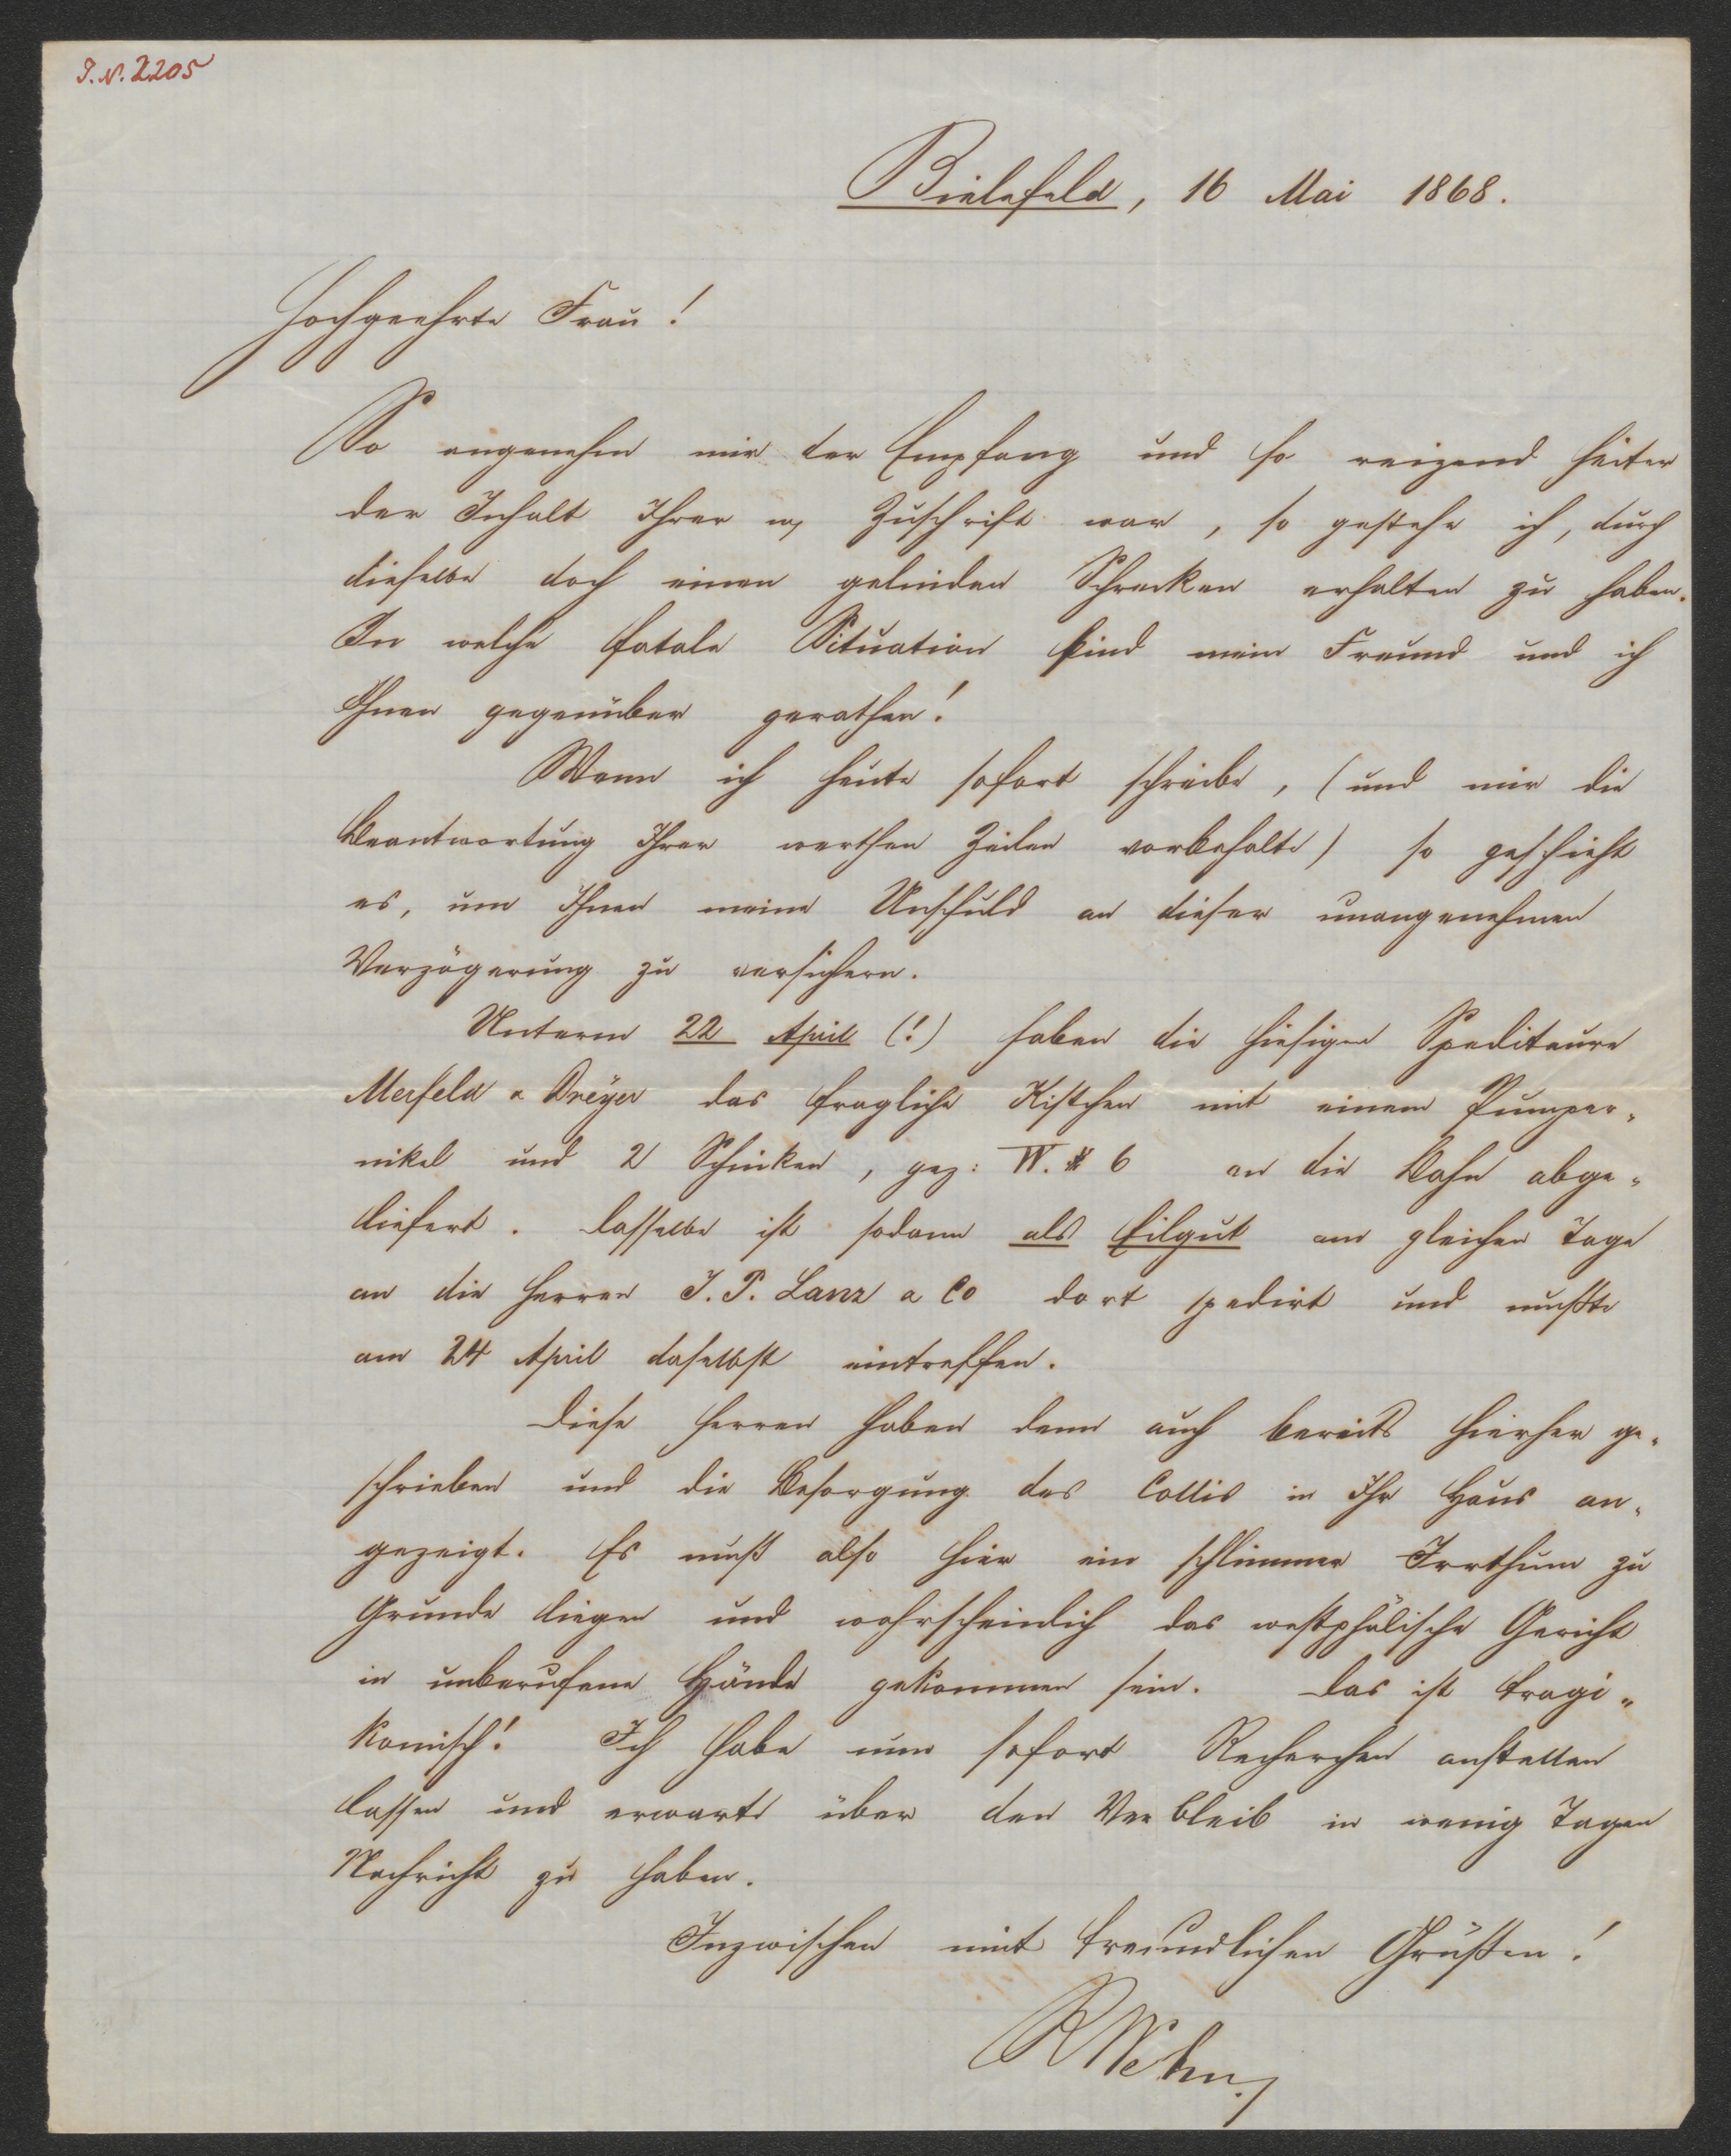 I.N. 2205
Bielefeld, 16 Mai 1868.
Hochgeehrte Frau!
So angenehm mir der Empfang und so reizend heiter
der Inhalt Ihrer w, Zuschrift war, so gestehe ich, durch
dieselbe doch einen gelinden Schrecken erhalten zu haben.
In welche fatale Situation sind mein Freund und ich
Ihnen gegenüber gerathen!
Wenn ich heute sofort schreibe, (und mir die
Beantwortung Ihrer werthen Zeilen vorbehalte) so geschieht
es, um Ihnen meine Unschuld an dieser unangenehmen
Verzögerung zu versichern.
Unterm 22 April (!) haben die hiesigen Spediteure
Merfeld & Dreyer das fragliche Kistchen mit einem Pumper-
nikel und 2 Schinken, gez: W. # 6 an die Bahn abge-
liefert. Dasselbe ist sodann als Eilgut am gleichen Tage
an die Herren J. P. Lanz & Co dort spedirt und mußte
am 24 April daselbst eintreffen.
Diese Herren haben denn auch bereits hierher ge-
schrieben und die Besorgung des Collis in Ihr Haus an-
gezeigt. Es muß also hier ein schlimmer Irrthum zu
Grunde liegen und wahrscheinlich das westphälische Gericht
in unberufene Hände gekommen sein. Das ist tragi-
komisch! Ich habe nun sofort Recherchen anstellen
lassen und erwarte über den Verbleib in wenig Tagen
Nachricht zu haben.
Inzwischen mit freundlichen Grüßen!